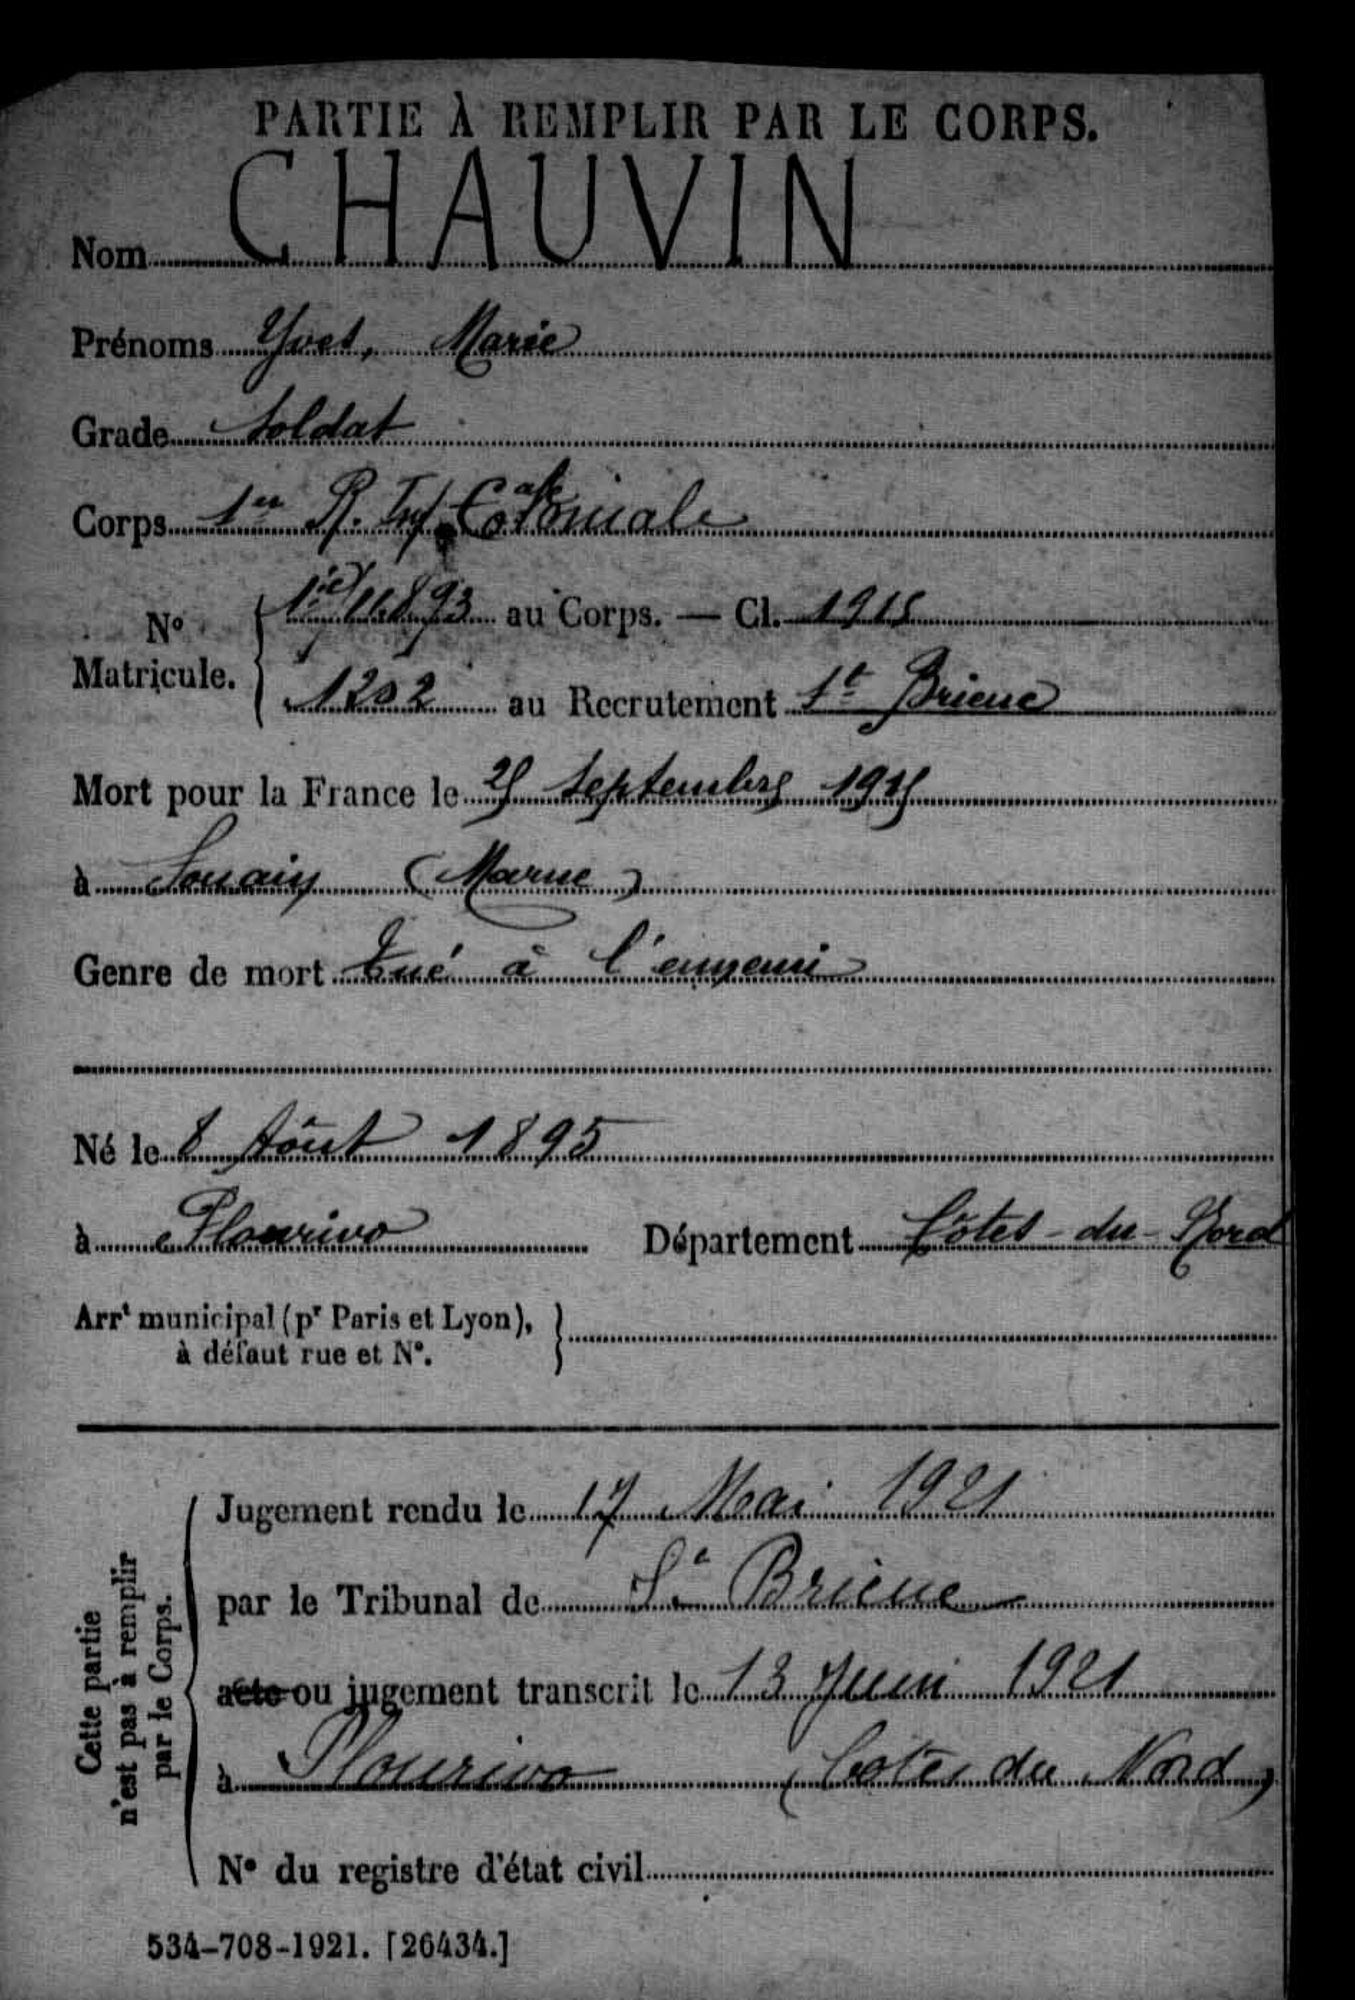 PARTIE À REMPLIR PAR LE CORPS.
Nom CHAUVIN
Prénoms Yves, Marie
Grade Soldat
Corps 1er R. Inf. Coloniale
No Matricule. 14893 au Corps. — Cl. 1915
1202 au Recrutement St Brieuc
Mort pour la France le 25 Septembre 1915
à Souain (Marne)
Genre de mort Tué à l'ennemi
Né le 8 Août 1895
à Plourivo Département Côtes-du-Nord
Arrt municipal (pr Paris et Lyon),
à défaut rue et No.
Cette partie
n'est pas à remplir
par le Corps.
Jugement rendu le 17 Mai 1921
par le Tribunal de St Brieuc
acte ou jugement transcrit le 13 Juin 1921
à Plourivo (Cotes du Nord)
No du registre d'état civil
534-708-1921. [26434.]